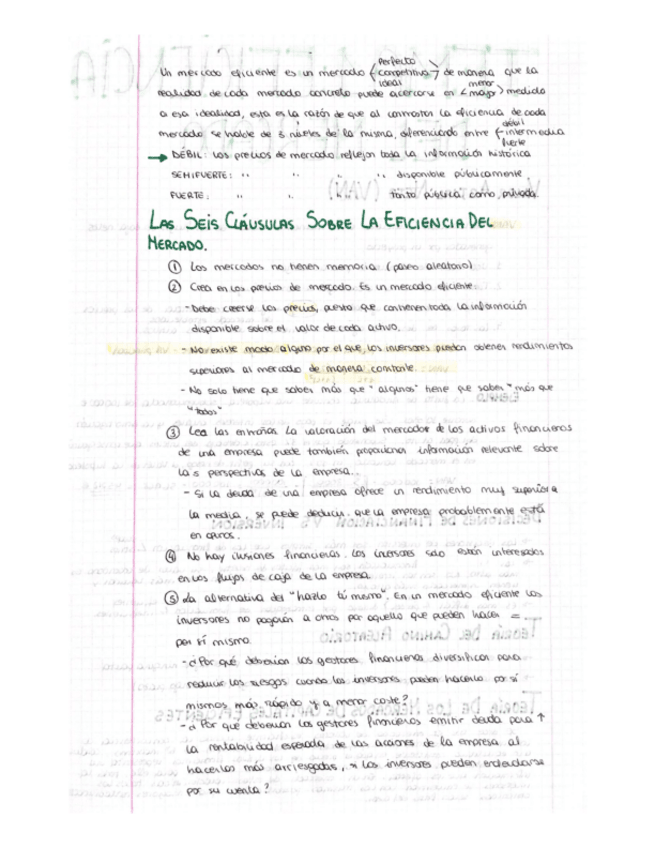 Perfecto
Un mercado eficiente es un mercado competitivo de manera que la
ideal menor
realidad de cada mercado concreto puede acercarse en mayor medida
a esa idealidad, esta es la razón de que al contrastar la eficiencia de cada
débil
mercado se hable de 3 niveles de la misma, diferenciando entre intermedia
fuerte
→ DÉBIL: Los precios de mercado reflejan toda la información histórica
SEMIFUERTE: " " " disponible públicamente
FUERTE: " " tanto pública como privada
LAS SEIS CLÁUSULAS SOBRE LA EFICIENCIA DEL
MERCADO.
① Los mercados no tienen memoria (paseo aleatorio)
② Crea en los precios de mercado. Es un mercado eficiente.
- Debe creerse los precios, puesto que contienen toda la información
disponible sobre el valor de cada activo.
- No existe modo alguno por el que los inversores puedan obtener rendimientos
superiores al mercado de manera constante.
- No solo tiene que saber más que "algunos" tiene que saber "más que
"todos"
③ Lea las entrañas. La valoración del mercado de los activos financieros
de una empresa puede también proporcionar información relevante sobre
las perspectivas de la empresa...
- Si la deuda de una empresa ofrece un rendimiento muy superior a
la media, se puede deducir que la empresa probablemente está
en apuros.
④ No hay ilusiones financieras. Los inversores solo están interesados
en los flujos de caja de la empresa.
⑤ La alternativa del "hazlo tú mismo". En un mercado eficiente los
inversores no pagarán a otros por aquello que pueden hacer =
por sí mismo.
- ¿Por qué deberían los gestores financieros diversificar para
reducir los riesgos cuando los inversores pueden hacerlo por sí
mismos más rápido y a menor coste?
- ¿Por qué deberían los gestores financieros emitir deuda para ↑
la rentabilidad esperada de las acciones de la empresa al
hacerlas más arriesgadas, si los inversores pueden endeudarse
por su cuenta?